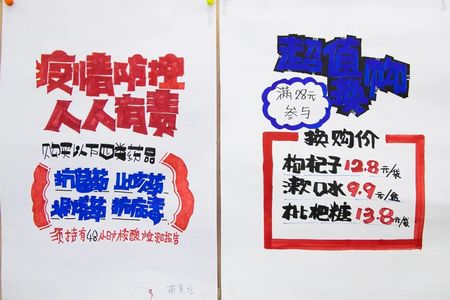 疫情防控
人人有责
购买以下四类药品
抗菌药 止咳药
退烧药 抗病毒
须持有48小时核酸检测报告
超值换购
满28元
参与
换购价
枸杞子12.8元/袋
漱口水9.9元/盒
枇杷糖13.8元/袋